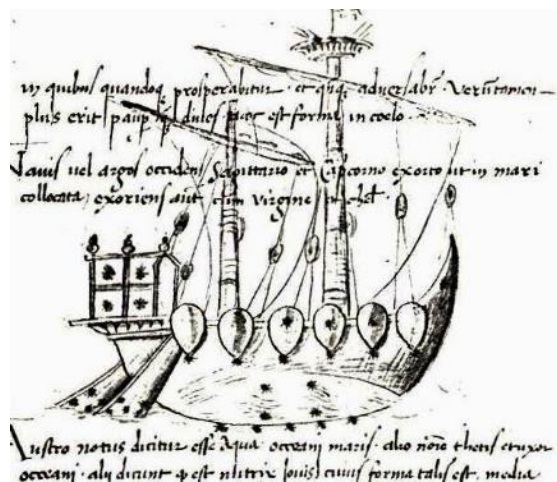 in quibus quandoq prosperabitur. et qnq adversabr. Verutamen
plus erit paup q dives. hec est forma in coelo.
Navis vel argos occidens Sagittario et Capcorno exorto ut in mari
collocata, exoriens aut cum Virgine et chel.
Austro notus dicitur esse Aqua occeani maris. alio noie thetis et uxor
occeani. alij dicunt q est nutrix Jouis cuius forma talis est. media